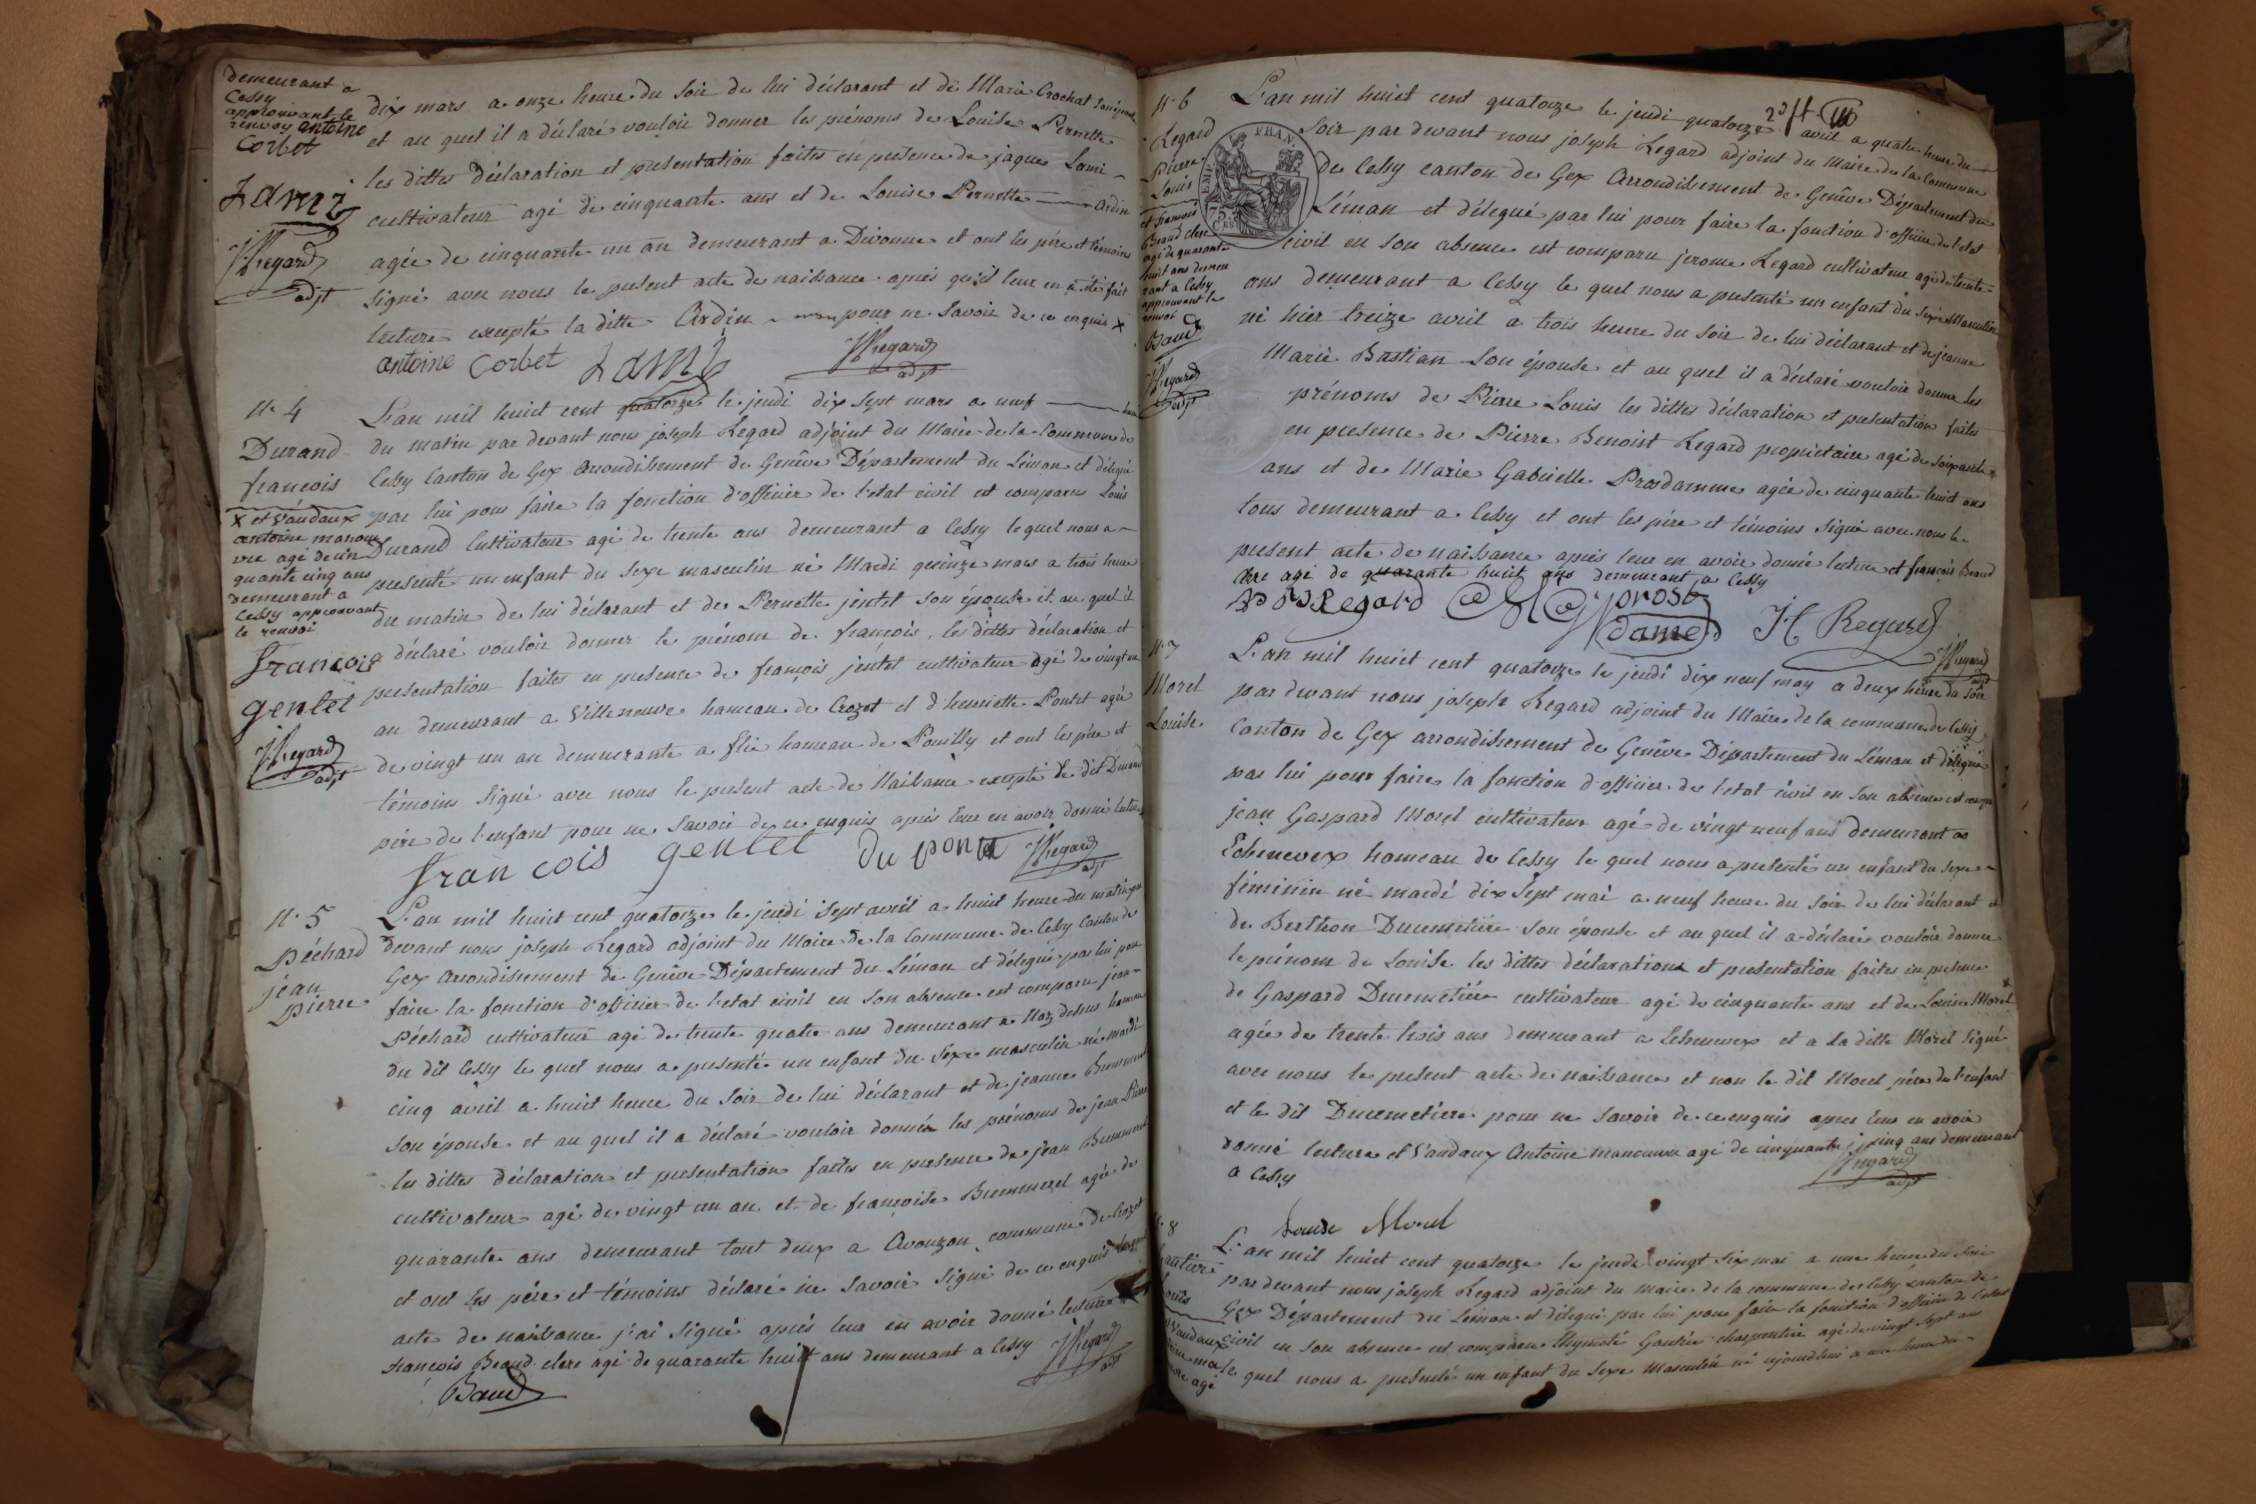 demeurant a
Cessy
approuvant le
renvoy antoine
Corbet
Lami
JRegard
adjt
dix mars a onze heure du soir de lui déclarant et de Marie Crochat son épouse
et au quel il a déclaré vouloir donner les prénoms de Louise Pernette
les dittes déclaration et présentation faites en présence de jaques Lami
cultivateur agé de cinquante ans et de Louise Pernette Ardin
agée de cinquante un an demeurant a Divonne et ont les père et témoins
signé avec nous le present acte de naissance après qu'il leur en a été fait
lecture excepté la ditte Ardin pour ne savoir de ce enquis x
antoine Corbet Lami JRegard
adjt
N. 4
Durand
françois
x et Vaudaux
antoine manou
vre agé de cin
quante cinq ans
demeurant a
Cessy approuvant
le renvoi
francois
gentet
JRegard
adjt
L'an mil huict cent quatorze le jeudi dix sept mars a neuf heure
du matin par devant nous joseph Regard adjoint du Maire de la Commune de
Cessy Canton de Gex Arrondissement de Genêve Département du Léman et délégué
par lui pour faire la fonction d'officier de l'etat civil est comparus Louis
Durand Cultivateur agé de trente ans demeurant a Cessy le quel nous a
presenté un enfant du sexe masculin né Mardi quinze mars a trois heure
du matin de lui déclarant et de Pernette jentet son épouse et au quel il
a déclaré vouloir donner le prénom de françois, les dittes déclaration et
presentation faites en presence de françois jentet cultivateur agé de vingt un
an demeurant a Villeneuve hameau de Crozet et d'henriette Pontet agée
de vingt un an demeurante a flie hameau de Pouilly et ont les père et
témoins signé avec nous le present acte de Naissance excepté le dit Durand
père de l'enfant pour ne savoir de ce enquis après leur en avoir donné lecture x
francois gentet du pontet JRegard
adjt
N. 5
Péchard
jean
pierre
L'an mil huict cent quatorze le jeudi sept avril a huit heure du matin par
devant nous joseph Regard adjoint du Maire de la Commune de Cessy Canton de
Gex Arrondissement de Genêve Département du Léman et délégué par lui pour
faire la fonction d'officier de l'etat civil en son absence est comparu jean
Péchard cultivateur agé de trente quatre ans demeurant a Naz dessus hameau
du dit Cessy le quel nous a presenté un enfant du sexe masculin né mardi
cinq avril a huict heure du soir de lui déclarant et de jeanne
son épouse et au quel il a déclaré vouloir donner les prénoms de jean Pierre
les dittes déclaration et presentation faites en presence de jean
cultivateur agé de vingt un an et de françoise Brummerel agée de
quarante ans demeurant tout deux a Avouzon commune de Crozet
et ont les père et témoins déclaré ne savoir signé de ce enquis
acte de naissance j'ai signé après leur en avoir donné lecture
françois Beaud clerc agé de quarante huit ans demeurant a Cessy JRegard
adjt
Baud
23 ft
N. 6
Regard
Pierre
Louis
et francois
Beaud clerc
agé de quarante
huit ans demeu
rant a Cessy
approuvant le
renvoi
Baud
JRegard
adjt
EMP. FRAN.
75
C.ES
L'an mil huict cent quatorze le jeudi quatorze avril a quatre heure du
soir par devant nous joseph Regard adjoint du Maire de la Commune
de Cessy canton de Gex Arrondissement de Genêve Département du
Léman et délégué par lui pour faire la fonction d'officier de l'etat
civil en son absence est comparu jerome Regard cultivateur agé de trente
ans demeurant a Cessy le quel nous a presenté un enfant du sexe Masculin
né hier treize avril a trois heure du soir de lui déclarant et de jeanne
Marie Bastian son épouse et au quel il a déclaré vouloir donner les
prénoms de Pierre Louis les dittes déclaration et presentation faites
en presence de Pierre Benoist Regard proprietaire agé de soixante
ans et de Marie Gabrielle Prosdamme agée de cinquante huict ans
tous demeurant a Cessy et ont les père et témoins signé avec nous le
present acte de naissance après leur en avoir donné lecture et françois Beaud
clerc agé de quarante huict ans demeurant a Cessy
Regard prost
dame JH Regard
JRegard
adjt
N. 7
Morel
Louise
L'an mil huict cent quatorze le jeudi dix neuf may a deux heure du soir
par devant nous joseph Regard adjoint du Maire de la commune de Cessy
Canton de Gex arrondissement de Genêve Département du Léman et délégué
par lui pour faire la fonction d'officier de l'etat civil en son absence est comparu
jean Gaspard Morel cultivateur agé de vingt neuf ans demeurant a
Echenevex hameau de Cessy le quel nous a presenté un enfant du sexe
féminin né mardi dix sept mai a neuf heure du soir de lui déclarant et
de Berthon Ducimetière son épouse et au quel il a déclaré vouloir donner
le prénom de Louise les dittes déclarations et presentation faites en presence
de Gaspard Ducimetière cultivateur agé de cinquante ans et de Louise Morel
agée de trente trois ans demeurant a Echenevex et a la ditte Morel signé
avec nous le present acte de naissance et non le dit Morel père de l'enfant
et le dit Ducimetière pour ne savoir de ce enquis apres leur en avoir
donné lecture et Vaudaux Antoine manouvre agé de cinquante cinq ans demeurant
a Cessy
JRegard
adjt
Louise Morel
N. 8
Gautier
Louis
Vaudaux
L'an mil huict cent quatorze le jeudi vingt six mai a une heure du soir
par devant nous joseph Regard adjoint du maire de la commune de Cessy canton de
Gex Département du Léman et délégué par lui pour faire la fonction d'officier de l'etat
civil en son absence est comparu Thymoté Gautier charpentier agé de vingt sept ans
le quel nous a presenté un enfant du sexe Masculin né aujourd'hui a une heure du